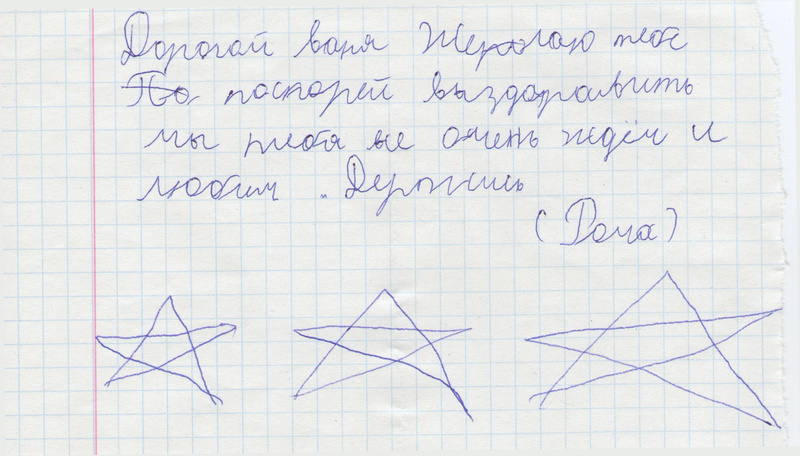 Дорогой ваня Желаю тебе
По поскорей выздоравить
мы тебя все очень ждём и
любим . Держись
(Рома)